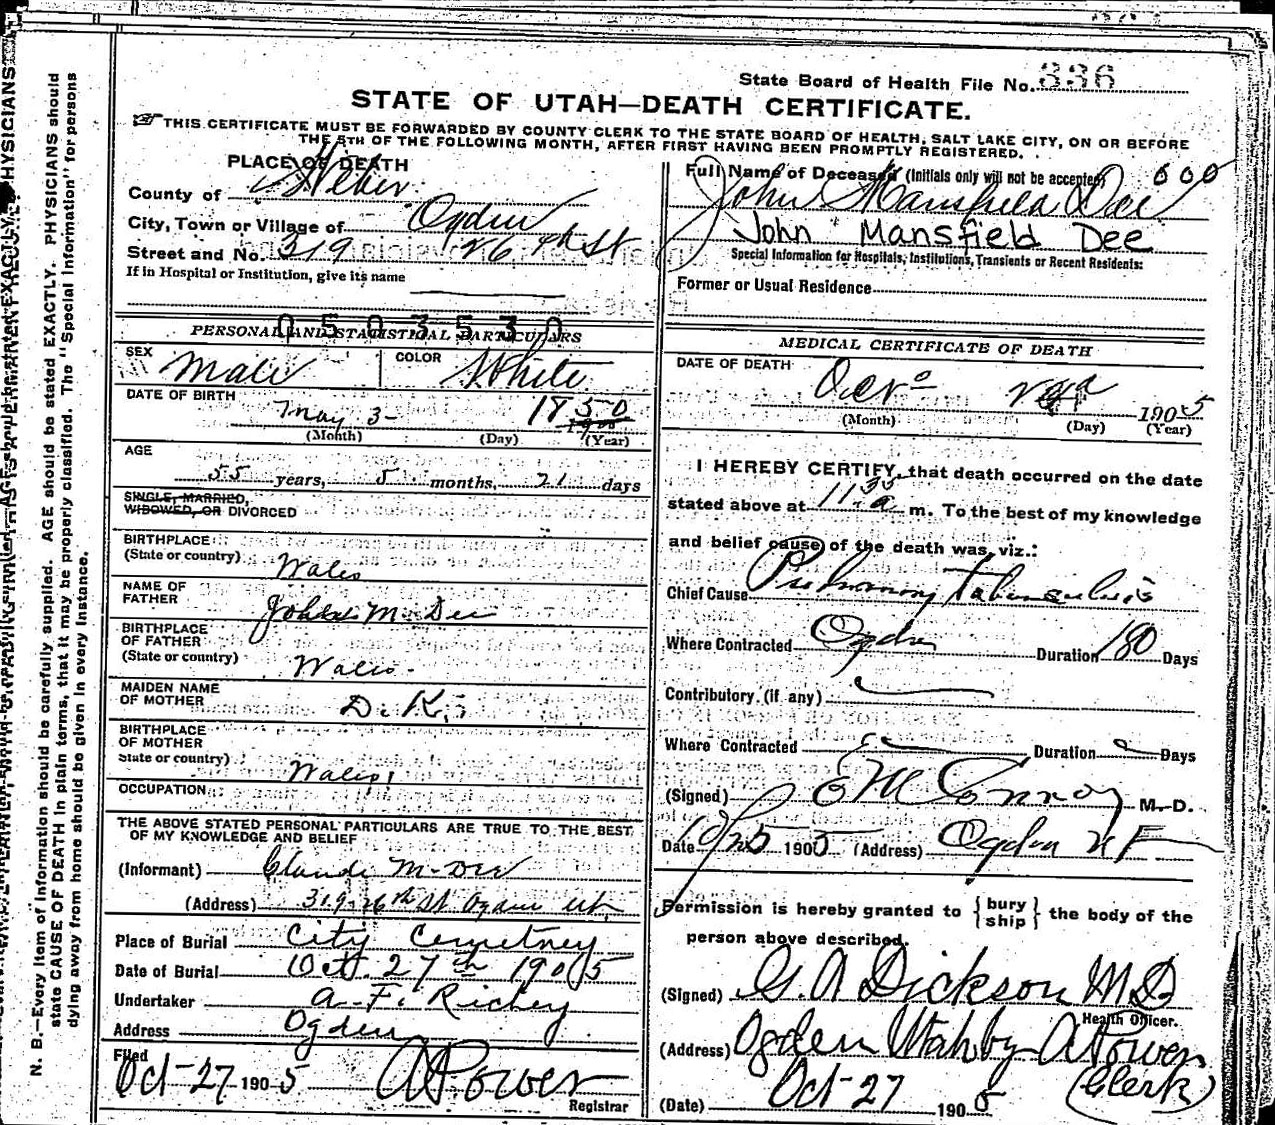 State Board of Health File No. 336
STATE OF UTAH—DEATH CERTIFICATE.
THIS CERTIFICATE MUST BE FORWARDED BY COUNTY CLERK TO THE STATE BOARD OF HEALTH, SALT LAKE CITY, ON OR BEFORE
THE 5TH OF THE FOLLOWING MONTH, AFTER FIRST HAVING BEEN PROMPTLY REGISTERED.
PLACE OF DEATH
County of Weber
City, Town or Village of Ogden
Street and No. 319 26th St
If in Hospital or Institution, give its name
0503530
PERSONAL AND STATISTICAL PARTICULARS
SEX Male COLOR White
DATE OF BIRTH May 3- 1850
(Month) (Day) (Year)
AGE
55 years, 5 months, 21 days
SINGLE, MARRIED,
WIDOWED, OR DIVORCED
BIRTHPLACE
(State or country) Wales
NAME OF
FATHER John M. Dee
BIRTHPLACE
OF FATHER
(State or country) Wales.
MAIDEN NAME
OF MOTHER D. K.
BIRTHPLACE
OF MOTHER
State or country) Wales
OCCUPATION
THE ABOVE STATED PERSONAL PARTICULARS ARE TRUE TO THE BEST
OF MY KNOWLEDGE AND BELIEF
(Informant) Claude M. Dee
(Address) 319-26th St Ogden Ut.
Place of Burial City Cemetney
Date of Burial Oct. 27th 1905
Undertaker A. F. Richey
Address Ogden
Filed
Oct-27 1905 A Power
Registrar
Full Name of Deceased (Initials only will not be accepted) 600
John Mansfield Dee
John Mansfield Dee
Special Information for Hospitals, Institutions, Transients or Recent Residents:
Former or Usual Residence
MEDICAL CERTIFICATE OF DEATH
DATE OF DEATH
1905
(Month) (Day) (Year)
I HEREBY CERTIFY, that death occurred on the date
stated above at 11.35 a m. To the best of my knowledge
and belief cause of the death was, viz.:
Chief Cause Pulmonary Tuberculosis
Where Contracted Ogden Duration 180 Days
Contributory (if any)
Where Contracted Duration Days
(Signed) E M Conroy M.D.
Date 10/25 1905 (Address) Ogden UT
Permission is hereby granted to {bury ship} the body of the
person above described.
(Signed) G. A Dickson MD
Health Officer.
(Address) Ogden Utah by A Power
(Clerk)
(Date) Oct-27 1905
N. B.—Every item of information should be carefully supplied. AGE should be stated EXACTLY. PHYSICIANS should
state CAUSE OF DEATH in plain terms, that it may be properly classified. The "Special Information" for persons
dying away from home should be given in every instance.